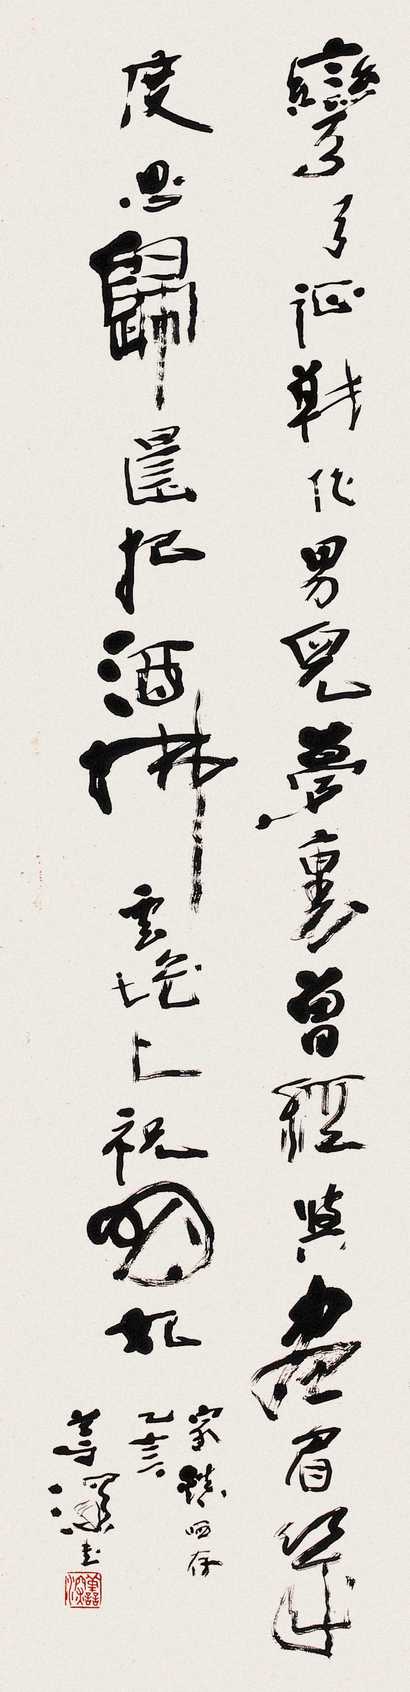 彎弓征戰作男兒夢裏曾經與畫眉幾
度思歸還把酒拂雲堆上祝明妃
家 哂存
乙亥
善深書